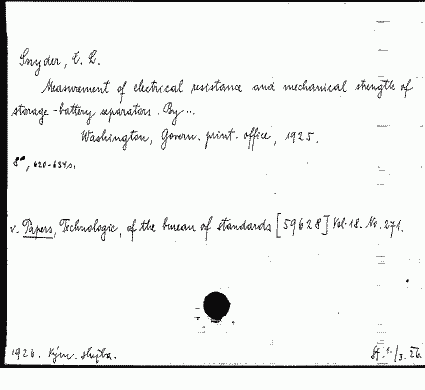 Snyder, C. L.
Measurement of electrical resistance and mechanical strength of
storage-battery separators. By...
Washington, Govern. print. office, 1925.
8°, 620-634 s.
v. Papers, Technologic, of the bureau of standards [59628] Vol. 18. No. 271.
1926. Vým. služba.